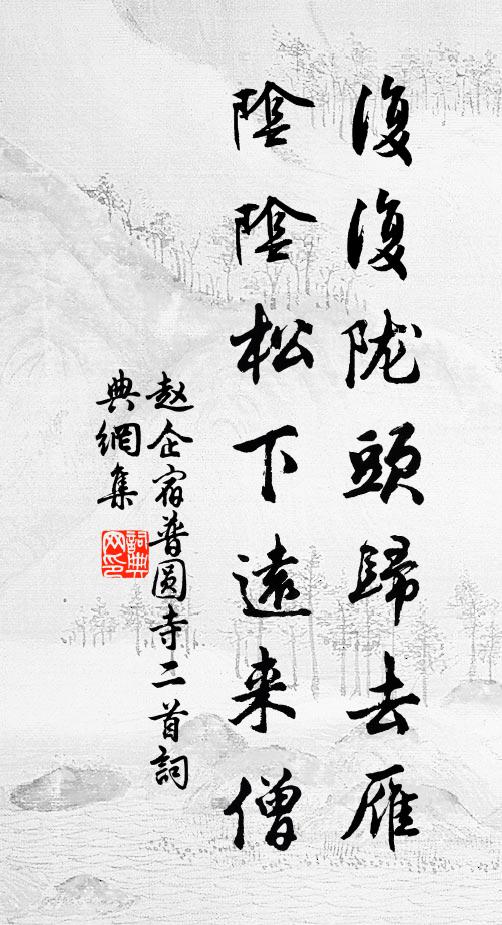 復復陇頭歸去雁
陰陰松下遠来僧
赵企宿普圆寺二首詞
典網集
詞典
网印